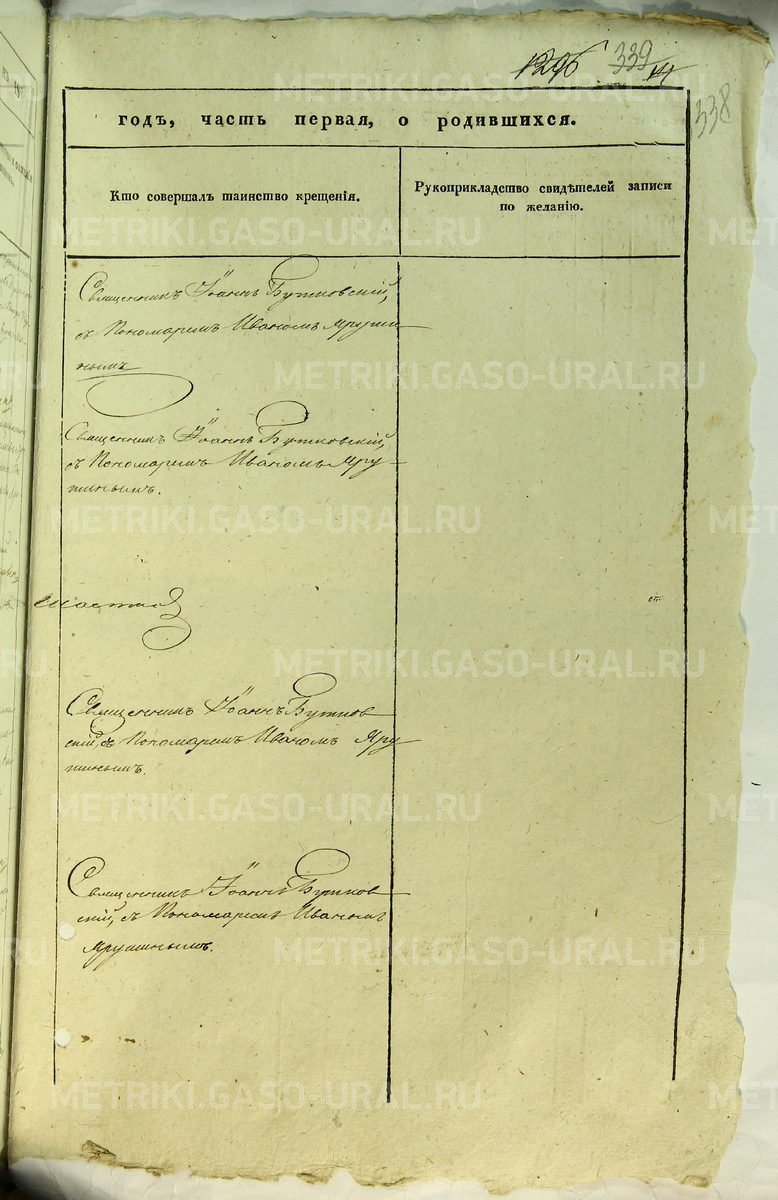 1296 339 14
338
годъ, часть первая, о родившихся.
Кто совершалъ таинство крещенія.
Рукоприкладство свидѣтелей записи
по желанію.
Священникъ Іоаннъ Бутковскій,
съ Пономаремъ Иваномъ Яруши
нымъ
Священникъ Іоаннъ Бутковскій,
съ Пономаремъ Иваномъ Яру-
шинымъ.
Священникъ Іоаннъ Бутков
скій, съ Пономаремъ Иваномъ Яру
шинымъ.
Священникъ Іоаннъ Бутков
скій, съ Пономаремъ Иваномъ
Ярушинымъ.
METRIKI.GASO-URAL.RU